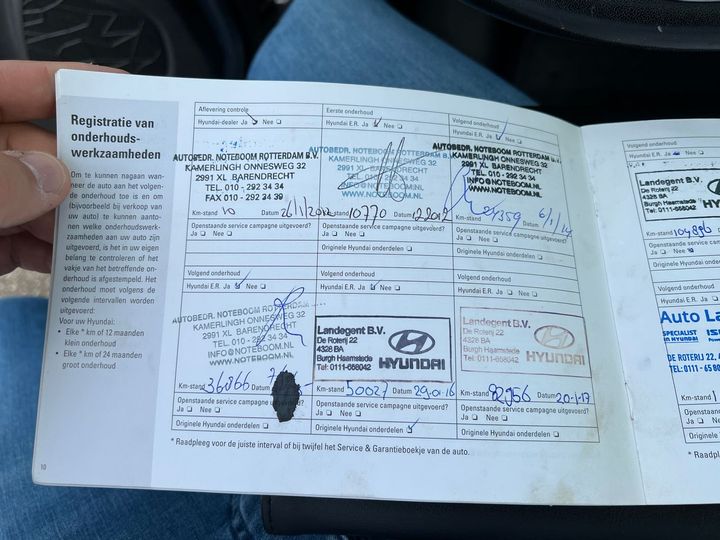 Registratie van
onderhouds-
werkzaamheden
Om te kunnen nagaan wan-
neer de auto aan het volgen-
de onderhoud toe is en om
(bijvoorbeeld bij verkoop van
uw auto) te kunnen aanto-
nen welke onderhoudswerk-
zaamheden aan uw auto zijn
uitgevoerd, is het in uw eigen
belang te controleren of het
vakje van het betreffende on-
derhoud is afgestempeld. Het
onderhoud moet volgens de
volgende intervallen worden
uitgevoerd:
Voor uw Hyundai:
• Elke * km of 12 maanden
klein onderhoud
• Elke * km of 24 maanden
groot onderhoud
10
Aflevering controle
Hyundai-dealer Ja Nee
AUTOBEDR. NOTEBOOM ROTTERDAM B.V.
KAMERLINGH ONNESWEG 32
2991 XL BARENDRECHT
TEL. 010 - 292 34 34
FAX 010 - 292 34 39
Km-stand 10 Datum 26/1/2012
Openstaande service campagne uitgevoerd?
Ja Nee
Eerste onderhoud
Hyundai E.R. Ja Nee
AUTOBEDR. NOTEBOOM ROTTERDAM B.V.
KAMERLINGH ONNESWEG 32
2991 XL BARENDRECHT
10770
Openstaande service campagne uitgevoerd?
Ja Nee
Originele Hyundai onderdelen
Volgend onderhoud
Hyundai E.R. Ja Nee
AUTOBEDR. NOTEBOOM ROTTERDAM B.V.
KAMERLINGH ONNESWEG 32
2991 XL BARENDRECHT
TEL. 010 - 292 34 34
INFO@NOTEBOOM.NL
WWW.NOTEBOOM.NL
Km-stand Datum 6/1/14
Openstaande service campagne uitgevoerd?
Ja Nee
Originele Hyundai onderdelen
Volgend onderhoud
Hyundai E.R. Ja Nee
AUTOBEDR. NOTEBOOM ROTTERDAM
KAMERLINGH ONNESWEG 32
2991 XL BARENDRECHT
INFO@NOTEBOOM.NL
WWW.NOTEBOOM.NL
Km-stand 36866 Datum
Openstaande service campagne uitgevoerd?
Ja Nee
Originele Hyundai onderdelen
Volgend onderhoud
Hyundai E.R. Ja Nee
Landegent B.V.
De Roterij 22
4328 BA
Burgh Haamstede
Tel: 0111-658042
HYUNDAI
Km-stand 50027 Datum 29-01-16
Openstaande service campagne uitgevoerd?
Ja Nee
Originele Hyundai onderdelen
Volgend onderhoud
Hyundai E.R. Ja Nee
Landegent B.V.
De Roterij 22
4328 BA
Burgh Haamstede
Tel: 0111-658042
HYUNDAI
Km-stand 82956 Datum 20-1-17
Openstaande service campagne uitgevoerd?
Ja Nee
Originele Hyundai onderdelen
* Raadpleeg voor de juiste interval of bij twijfel het Service & Garantieboekje van de auto.
Volgend onderhoud
Hyundai E.R. Ja Nee
Landegent B.V.
De Roterij 22
4328 BA
Burgh Haamstede
Tel: 0111-658042
Km-stand 104896
Openstaande service
Ja Nee
Originele Hyundai
Volgend onderhoud
Hyundai E.R. Ja
Auto La
SPECIALIST
in HYUNDAI
DE ROTERIJ 22,
TEL: 0111 - 65 80
Km-stand
Openstaande service
Ja Nee
Originele Hyundai
* Raadpl